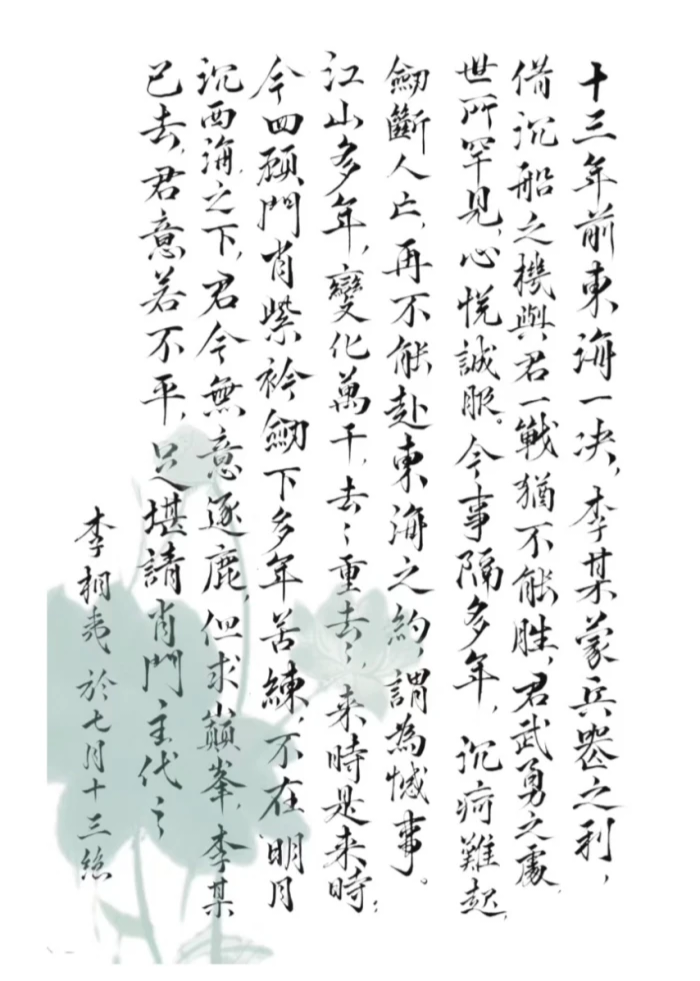 十三年前東海一决，李某蒙兵器之利，
借沉船之機與君一戰猶不能勝，君武勇之處，
世所罕見，心悦誠服。今事隔多年，沉疴難起，
劒斷人亡，再不能赴東海之約，謂為憾事。
江山多年，變化萬千，去〻重去〻，来時是来時；
今四顧門肖紫衿劒下多年苦練，不在明月
沉西海之下，君今無意逐鹿，但求巔峯，李某
已去，君意若不平，足堪請肖門主代之
李相夷於七月十三絶